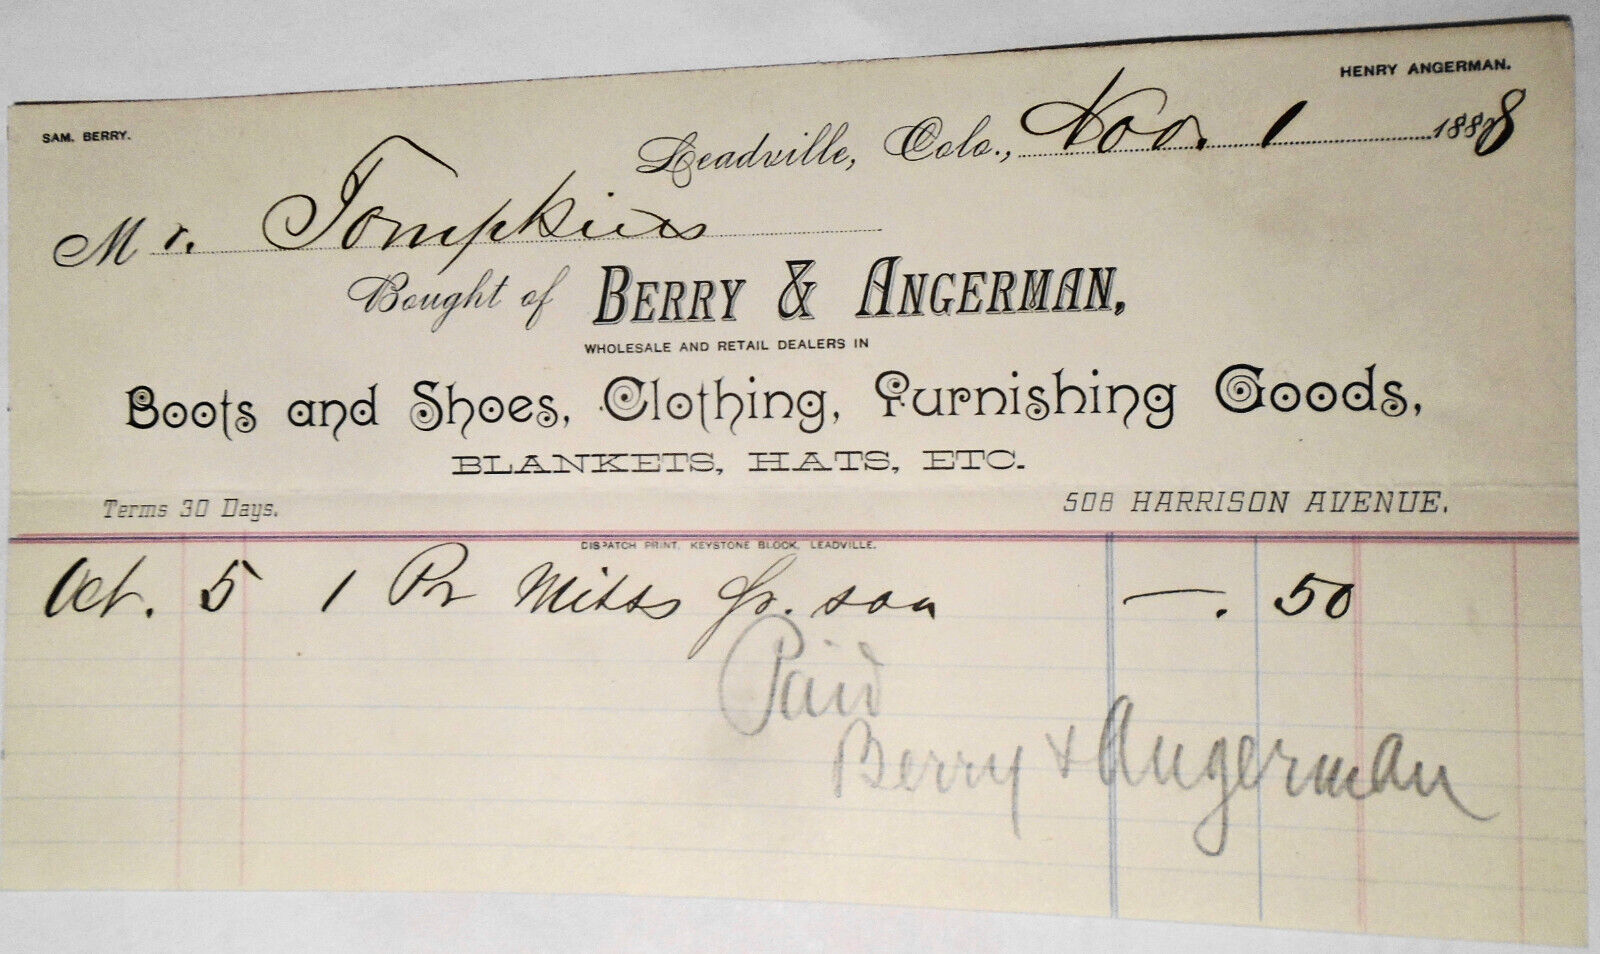 SAM. BERRY.
HENRY ANGERMAN.
Leadville, Colo., Nov. 1 1888
Mr. Tompkins
Bought of BERRY & ANGERMAN,
WHOLESALE AND RETAIL DEALERS IN
Boots and Shoes, Clothing, Furnishing Goods,
BLANKETS, HATS, ETC.
Terms 30 Days.
508 HARRISON AVENUE.
DISPATCH PRINT, KEYSTONE BLOCK, LEADVILLE.
Oct. 5 1 Pr Mitts for son —. 50
Paid
Berry & Angerman